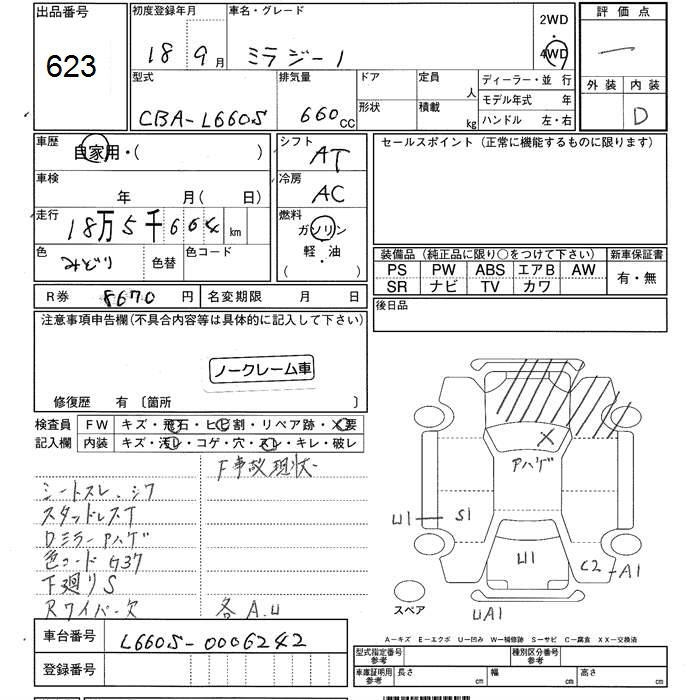 出品番号
623
初度登録年月
18 9月
車名・グレード
ミラジーノ
2WD
・
4WD
評価点
外装 内装
D
型式
CBA-L660S
排気量
660cc
ドア
形状
定員 人
積載 kg
ディーラー・並 行
モデル年式 年
ハンドル 左・右
車歴
自家用・( )
シフト
AT
セールスポイント (正常に機能するものに限ります)
車検
年 月(日)
冷房
AC
走行
18万5千664km
燃料
ガソリン
・
軽・油
( )
色
みどり
色替
色コード
装備品 (純正品に限り○をつけて下さい) 新車保証書
PS PW ABS エアB AW
SR ナビ TV カワ
有・無
R券 8670円
名変期限 月 日
後日品
注意事項申告欄(不具合内容等は具体的に記入して下さい)
ノークレーム車
修復歴 有〔箇所 〕
検査員
記入欄
FW キズ・飛石・ヒビ割・リペア跡・X要
内装 キズ・汚レ・コゲ・穴・スレ・キレ・破レ
F事故現状
シートスレ、シワ
スタッドレスT
DミラーPハゲ
色コードG37
下廻りS
Rワイパー欠
各A.U
X
Pハゲ
U1
S1
U1
C2
A1
UA1
スペア
A-キズ E-エクボ U-凹み W-補修跡 S-サビ C-腐食 XX-交換済
車台番号
L660S-0006242
登録番号
型式指定番号
参考
種別区分番号
参考
車庫証明用
参考
長さ cm
幅 cm
高さ cm